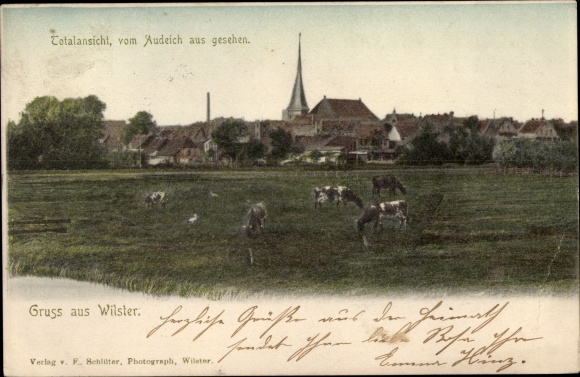 Totalansicht, vom Audeich aus gesehen.
Gruss aus Wilster.
herzliche Grüße aus der Heimath
sendet Ihr liebe Ihr
Emma Hinz.
Verlag v. F. Schlüter, Photograph, Wilster.